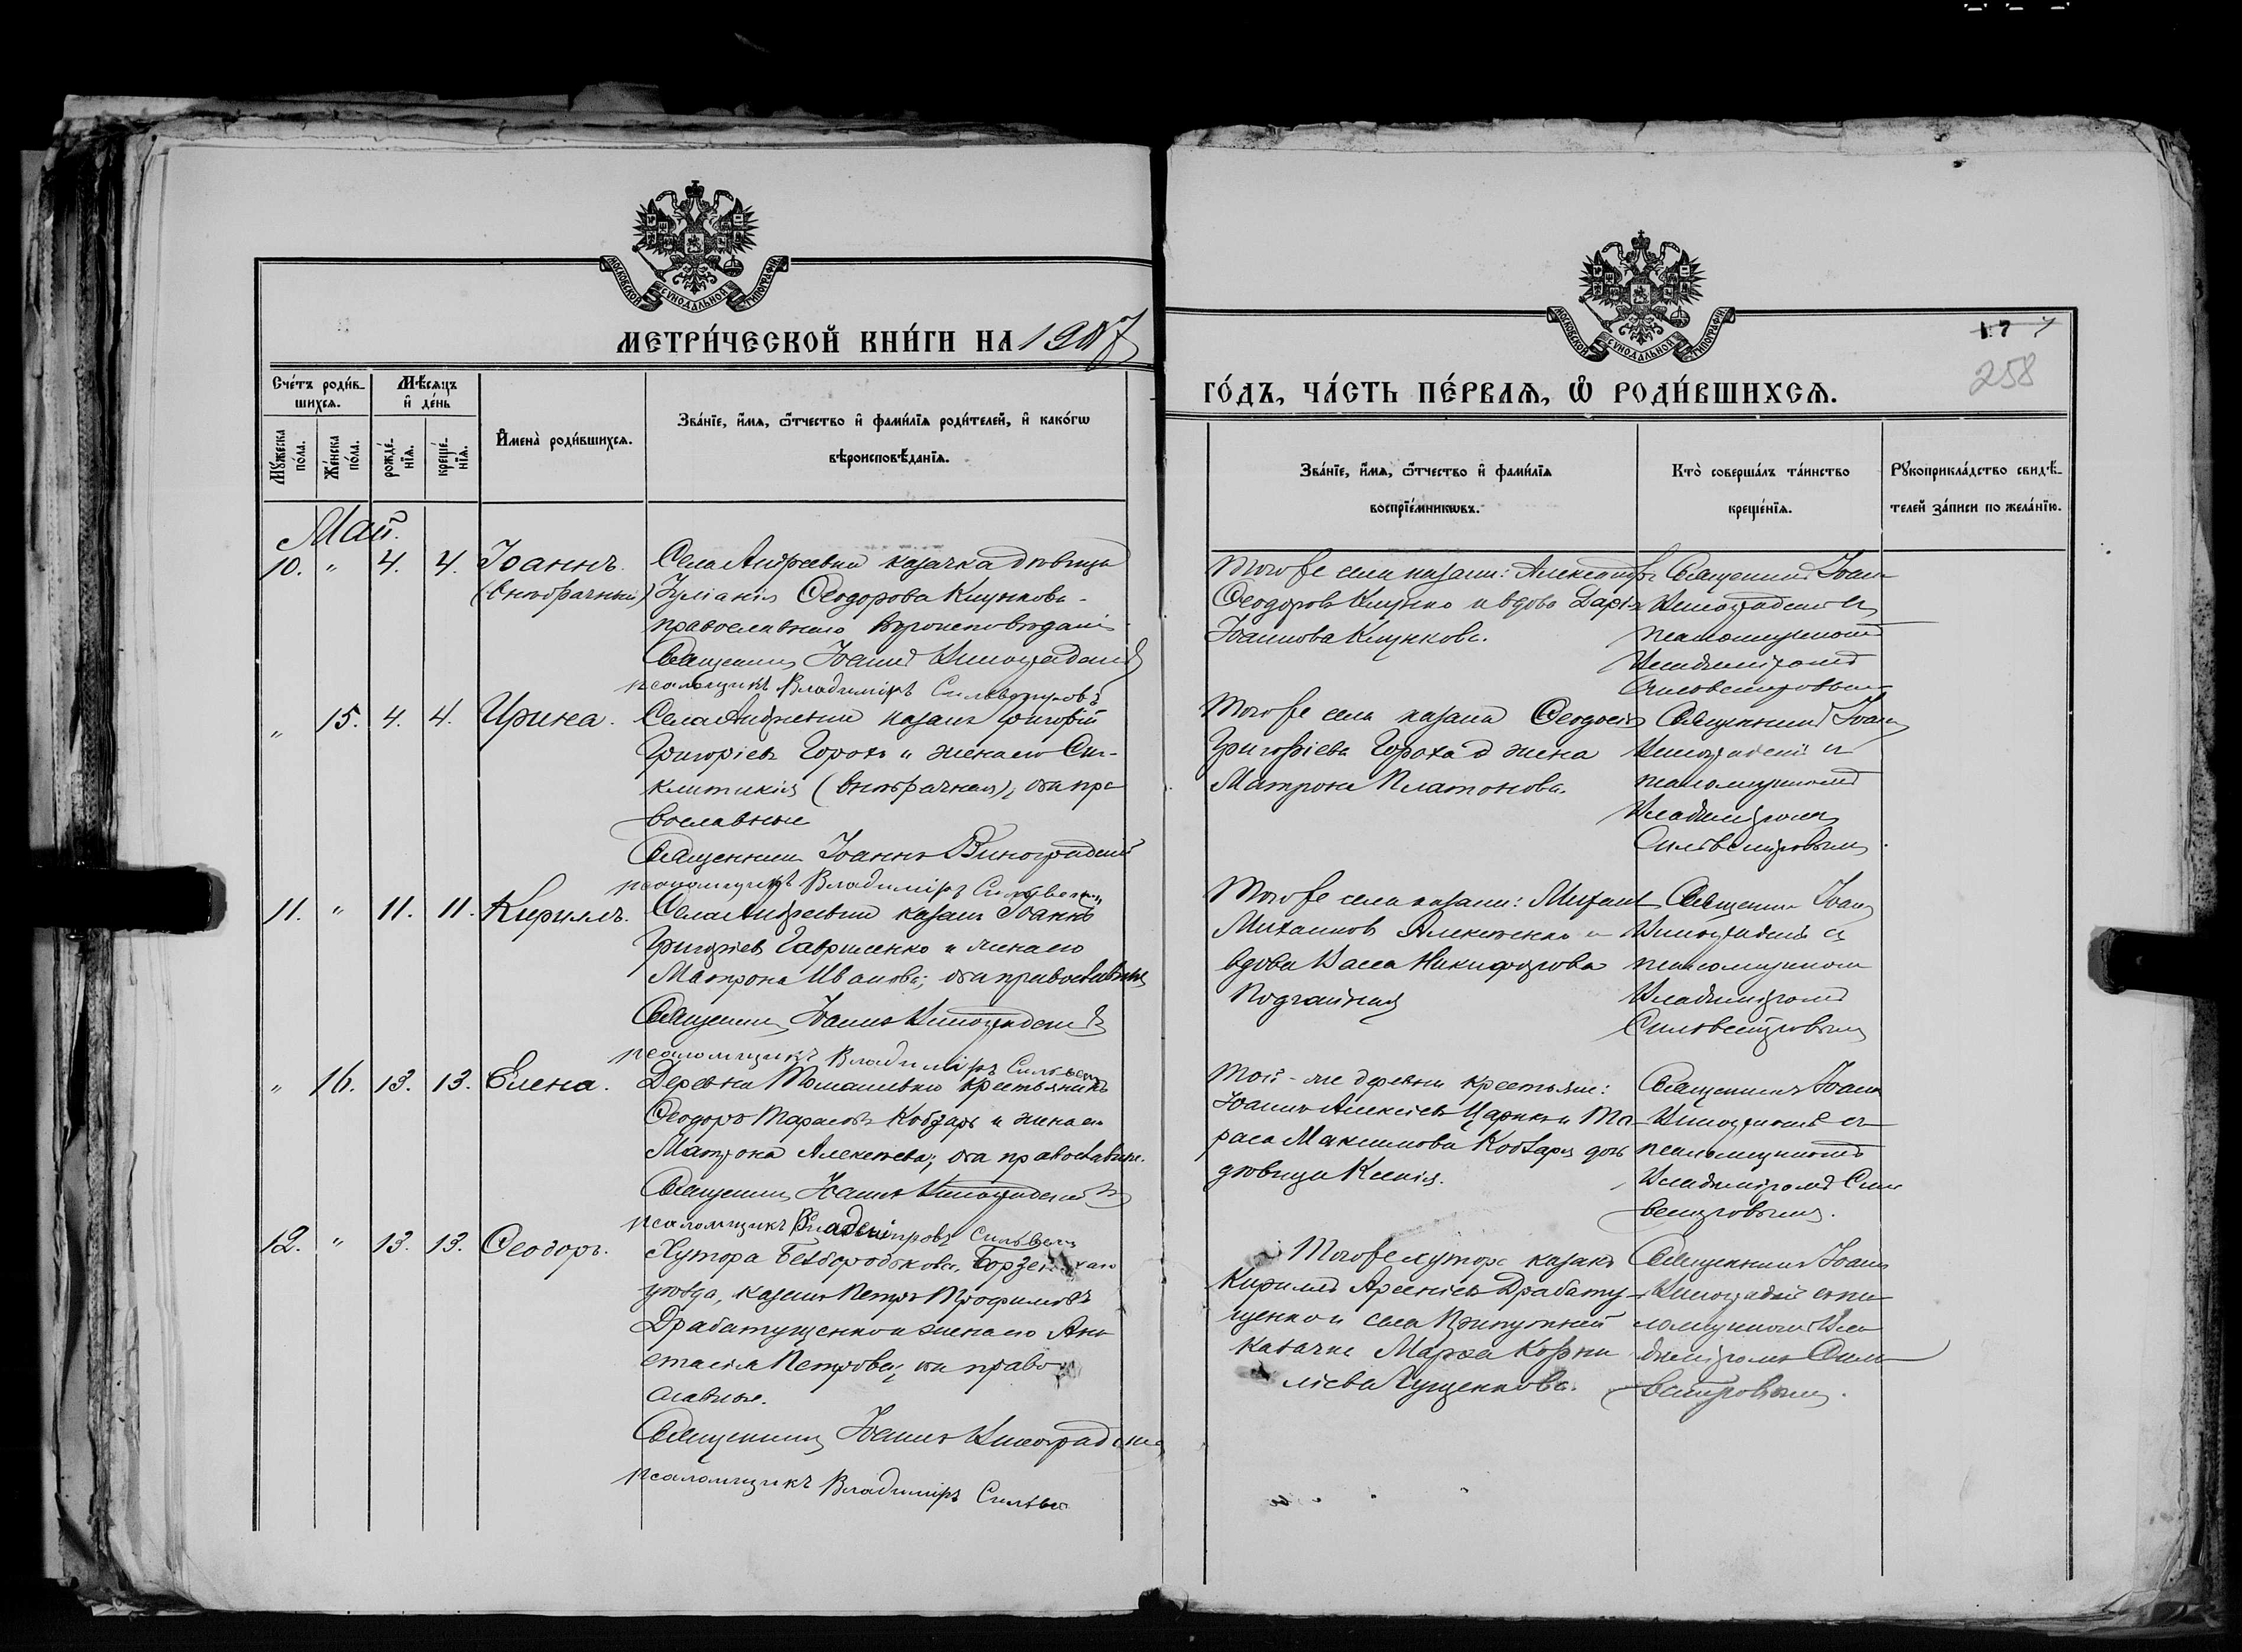 МОСКОВСКОЙ СѴНОДАЛЬНОЙ ТИПОГРАФІИ
МЕТРИ́ЧЕСКОЙ КНИ́ГИ НА 1907
Сче́тъ роди́в-
шихсѧ.
Мѣ́сѧцъ
и҆ де́нь
Мꙋ́жеска
по́ла.
Же́нска
по́ла.
рожде́-
нїѧ.
креще́-
нїѧ.
И҆мена̀ роди́вшихсѧ.
Зва́нїе, и҆́мѧ, ѻ҆́тчество и҆ фами́лїѧ роди́телей, и҆ како́гѡ
вѣроисповѣ́данїѧ.
Май.
10. " 4. 4. Іоаннъ. Села Андреевки казачка дѣвица
(внѣбрачный) Іуліанія Ѳеодорова Клункова -
православнаго вѣроисповѣданія
Священникъ Іоаннъ Виноградскій
псаломщикъ Владиміръ Сильвестровъ
" 15. 4. 4. Ирина. Села Андреевки казакъ Григорій
Григоріевъ Горохъ и жена его Син-
клитикія (внѣбрачная), оба пра
вославные
Священникъ Іоаннъ Виноградскій
псаломщикъ Владиміръ
11. " 11. 11. Кириллъ. Села Андреевки казакъ Іоаннъ
Григоріевъ Гавриленко и жена его
Матрона Иванова; оба православные
Священникъ Іоаннъ Виноградскій
псаломщикъ Владиміръ
" 16. 13. 13. Елена. Деревни крестьянинъ
Ѳеодоръ Тарасовъ Кобзарь и жена его
Матрона Алексѣева; оба православные.
Священникъ Іоаннъ Виноградскій
псаломщикъ
12. " 13. 13. Ѳеодоръ. Хутора Безбородькова, Борзенскаго
уѣзда, казакъ Петръ Трофимовъ
Драбатущенко и жена его Ана
стасія Петрова; оба право
славные.
Священникъ Іоаннъ Виноградскій
псаломщикъ Владиміръ
МОСКОВСКОЙ СѴНОДАЛЬНОЙ ТИПОГРАФІИ
258
ГО́ДЪ, ЧА́СТЬ ПЕ́РВАѦ, Ѡ҆ РОДИ́ВШИХСѦ.
Зва́нїе, и҆́мѧ, ѻ҆́тчество и҆ фами́лїѧ
воспрїе́мникѡвъ.
Кто̀ соверша́лъ та́инство
креще́нїѧ.
Рꙋкоприкла́дство свидѣ́-
телей за́писи по жела́нїю.
Того же села казаки: Александръ
Ѳеодоровъ Клунко и вдова Дарія
Іоаннова Клункова.
Священникъ Іоаннъ
Виноградскій съ
псаломщикомъ
Владиміромъ
Сильвестровымъ
Того же села казака Ѳеодосія
Григоріева Гороха жена
Матрона Платонова.
Священникъ Іоаннъ
Виноградскій съ
псаломщикомъ
Владиміромъ
Сильвестровымъ.
Того же села казаки: Михаилъ
Михаиловъ Алексѣенко и
вдова Васса Никифорова
Священникъ Іоаннъ
Виноградскій съ
псаломщикомъ
Владиміромъ
Сильвестровымъ
Той-же деревни крестьяне:
Іоаннъ Алексіевъ и Та-
раса Максимова Кобзаря дочь
дѣвица Ксенія.
Священникъ Іоаннъ
Виноградскій съ
псаломщикомъ
Владиміромъ Силь
вестровымъ.
Того же хутора казакъ
Кириллъ Арсеніевъ Драбату-
щенко и села
казачка Марѳа Корни
ліева Гущенкова.
Священникъ Іоаннъ
Виноградскій съ пса
ломщикомъ Вла
диміромъ Силь
вестровымъ.